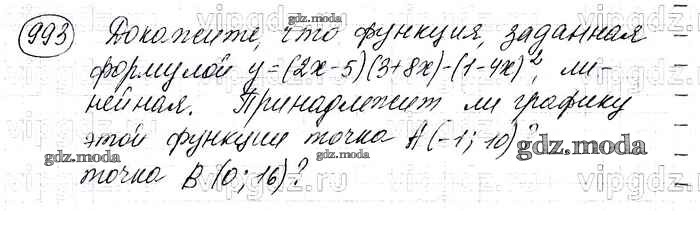 993 Докажите, что функция, заданная
формулой y=(2x-5)(3+8x)-(1-4x)², ли-
нейная. Принадлежит ли графику
этой функции точка A(-1; 10)?
точка B(0; 16)?
gdz.moda
gdz.moda
gdz.moda
gdz.moda
gdz.moda
vipgdz.v
vipgdz.v